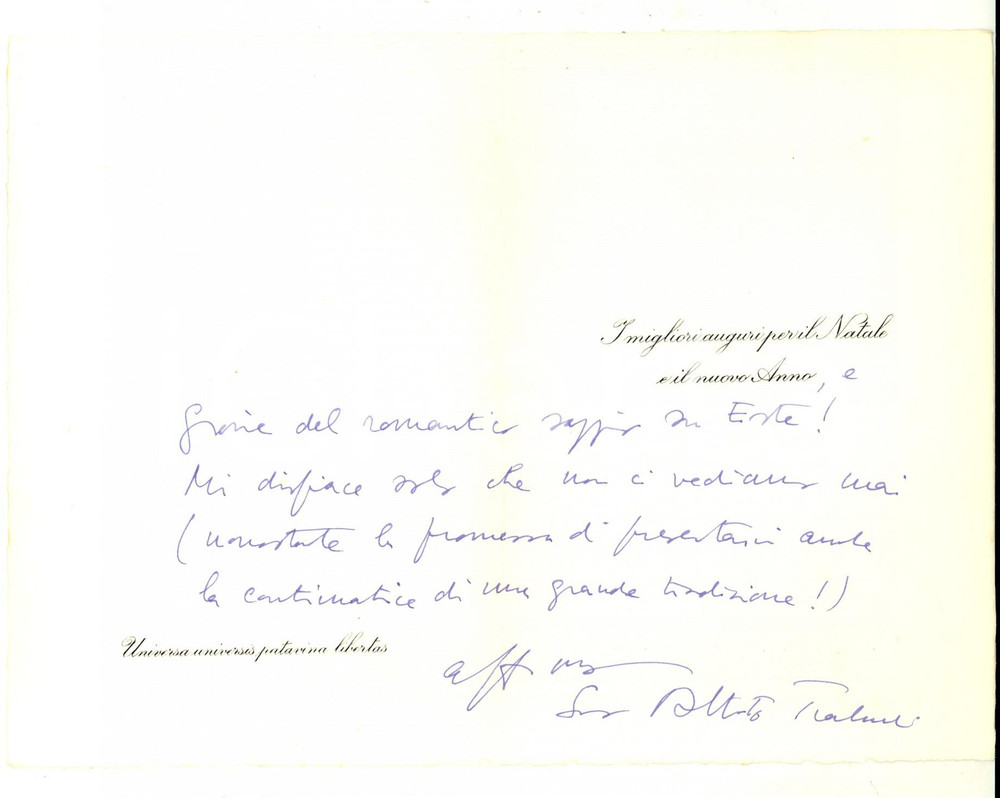 I migliori auguri per il Natale
e il nuovo Anno, e
Grazie del romantico saggio su Este!
Mi dispiace solo che non ci vediamo mai
(nonostante la promessa di presentarci anche
la continuatrice di una grande tradizione!)
Universa universis patavina libertas
aff.mo
Suo Alberto